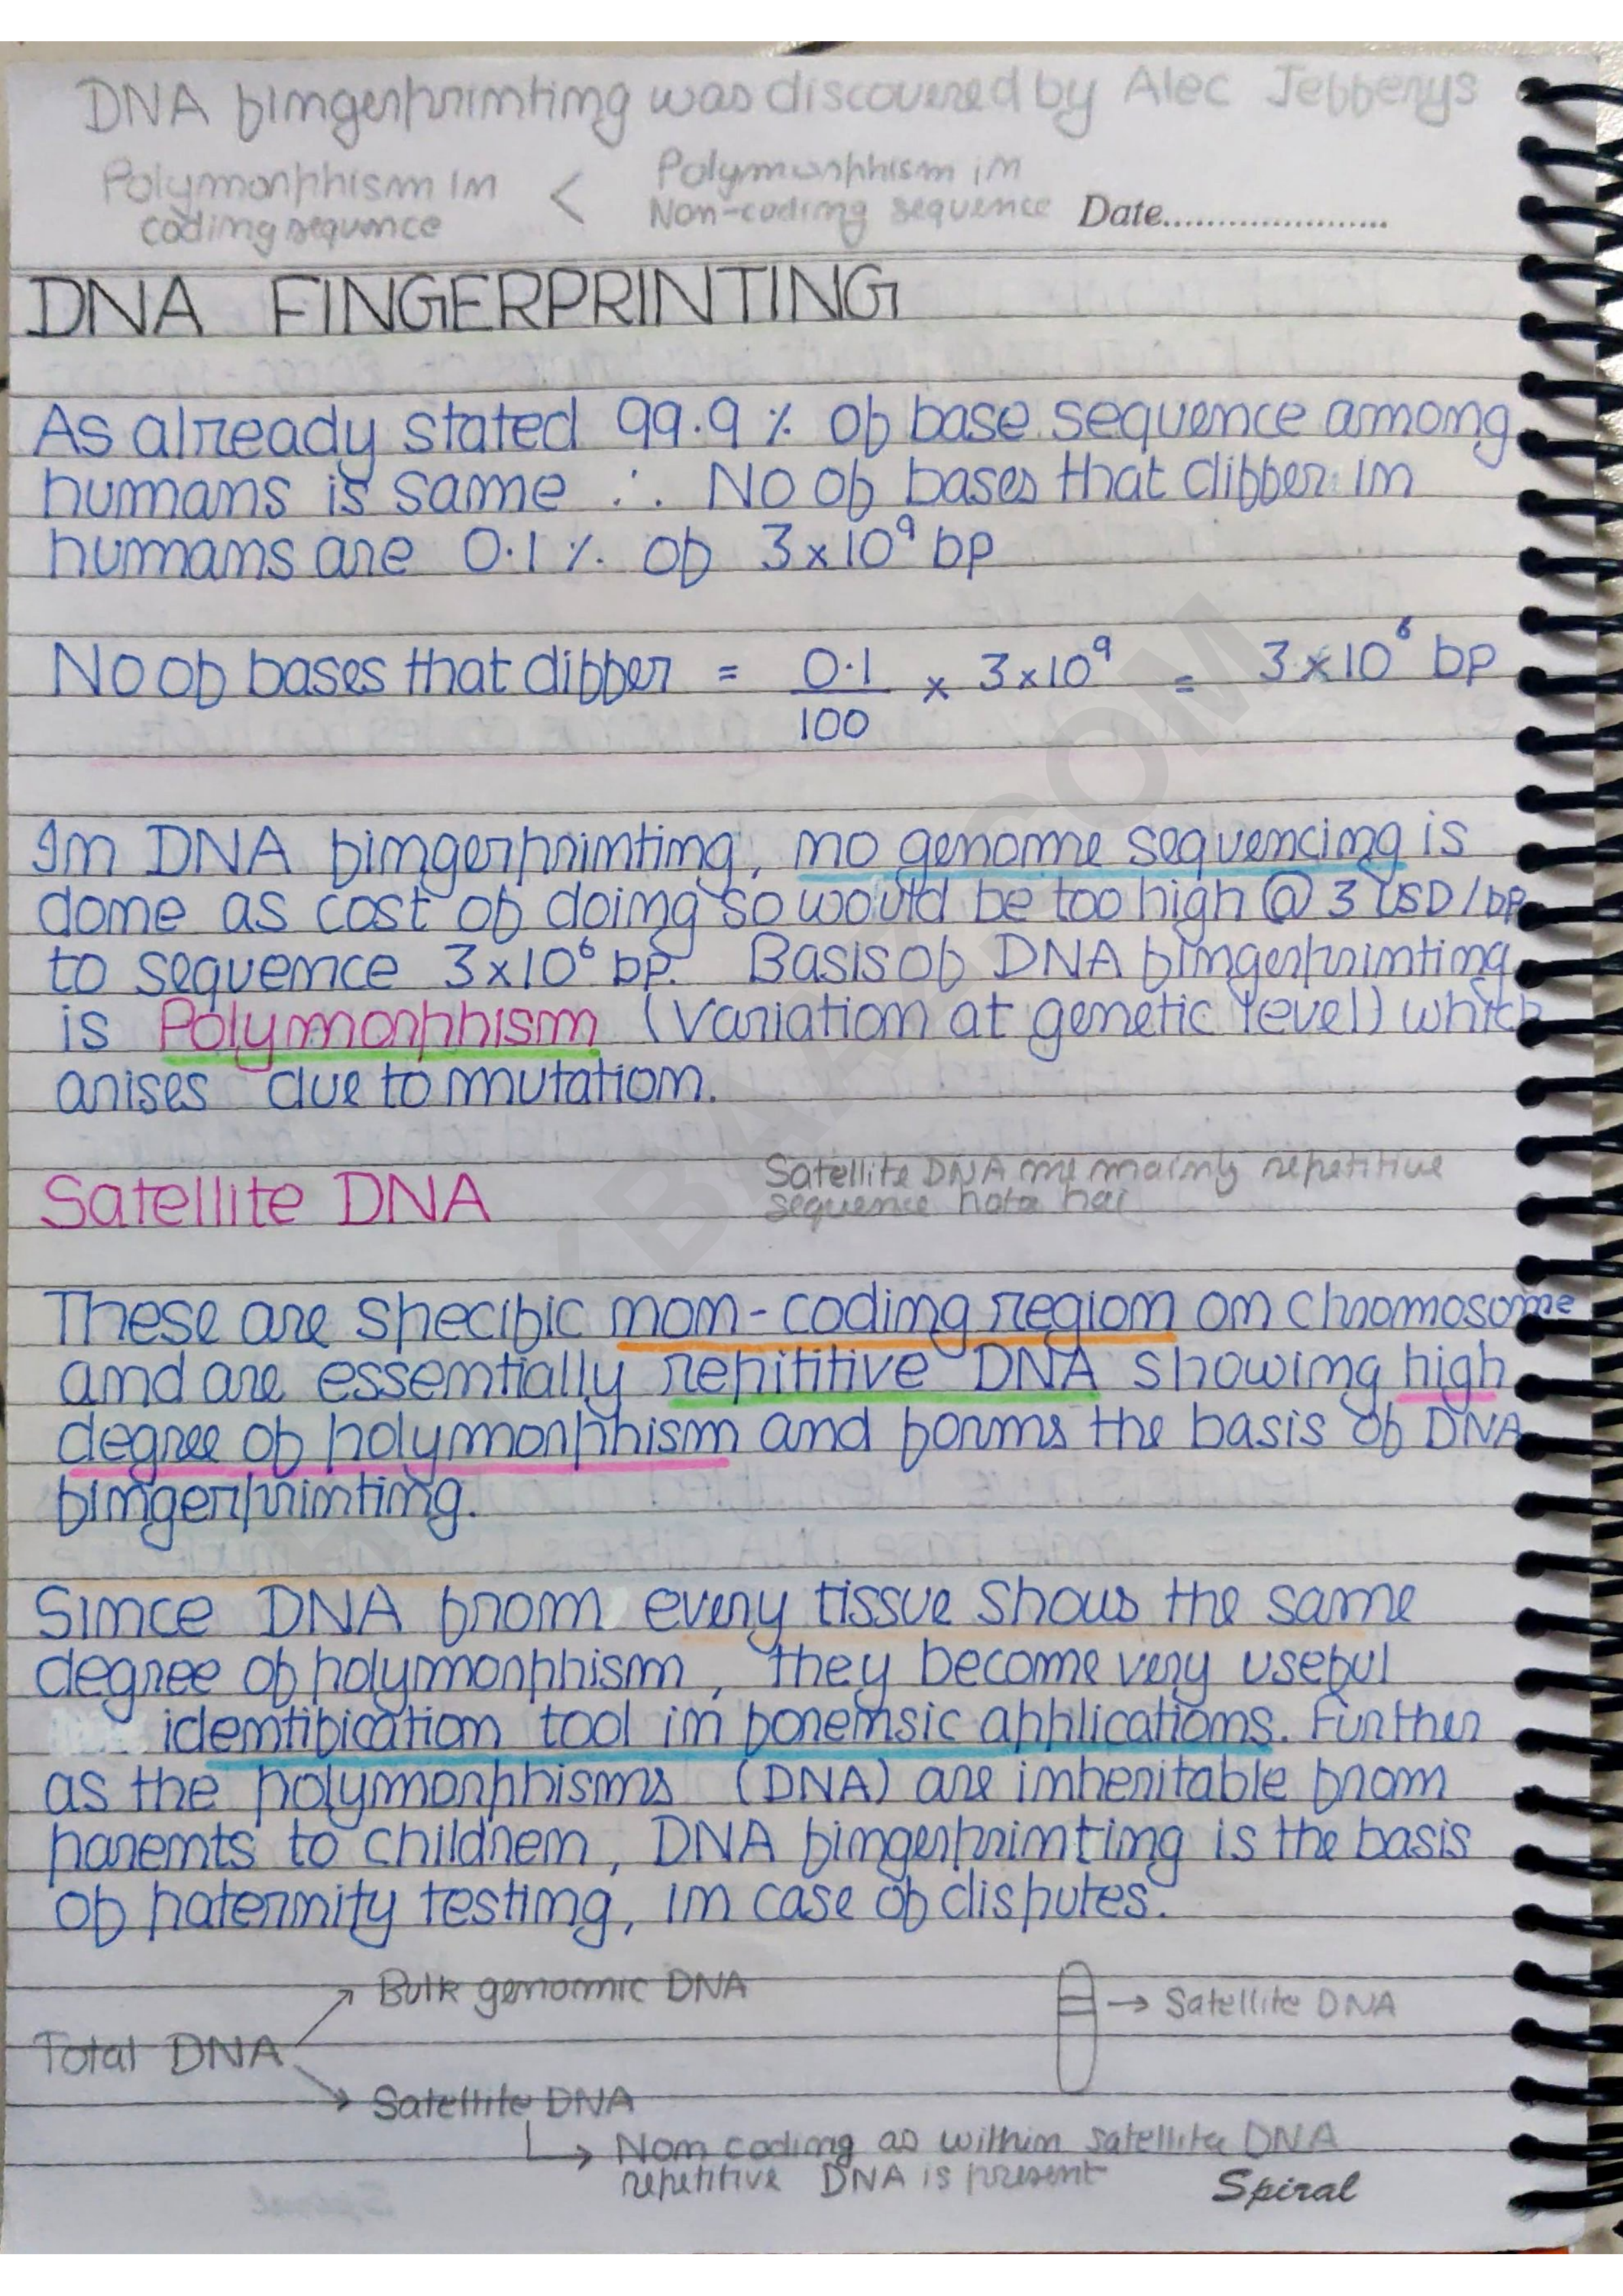 DNA fingerprinting was discovered by Alec Jefferys
Polymorphism in < Polymorphism in
coding sequence Non-coding sequence Date......................
DNA FINGERPRINTING
As already stated 99.9 % of base sequence among
humans is same ∴ No of bases that differ in
humans are 0.1 % of 3x10⁹ bp
No of bases that differ = 0.1/100 x 3x10⁹ = 3x10⁶ bp
In DNA fingerprinting, no genome sequencing is
done as cost of doing so would be too high @ 3 USD/bp
to sequence 3x10⁶ bp. Basis of DNA fingerprinting
is Polymorphism (Variation at genetic level) which
arises due to mutation.
Satellite DNA
Satellite DNA me mainly repetitive
sequence hota hai
These are specific non-coding region on chromosome
and are essentially repititive DNA showing high
degree of polymorphism and forms the basis of DNA
fingerprinting.
Since DNA from every tissue shows the same
degree of polymorphism, they become very useful
identification tool in forensic applications. Further
as the polymorphisms (DNA) are inheritable from
parents to children, DNA fingerprinting is the basis
of paternity testing, in case of disputes.
Bulk genomic DNA
→ Satellite DNA
Total DNA
Satellite DNA
→ Non coding as within satellite DNA
repetitive DNA is present
Spiral